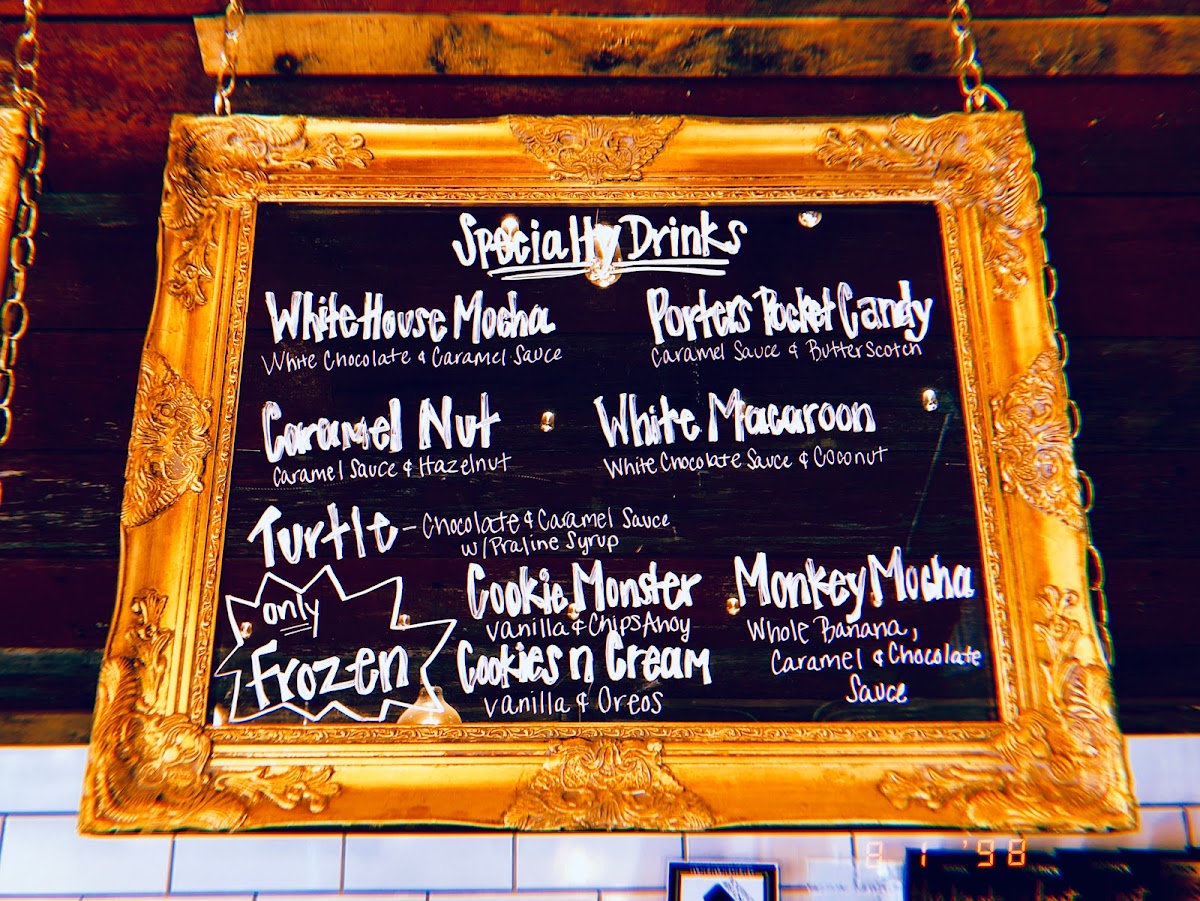 Specialty Drinks
White House Mocha
White Chocolate & Caramel Sauce
Porters Pocket Candy
Caramel Sauce & Butterscotch
Caramel Nut
Caramel Sauce & Hazelnut
White Macaroon
White Chocolate Sauce & Coconut
Turtle - Chocolate & Caramel Sauce
w/Praline Syrup
only
Frozen
Cookie Monster
Vanilla & Chips Ahoy
Cookies n Cream
Vanilla & Oreos
Monkey Mocha
Whole Banana,
Caramel & Chocolate
Sauce
8 1 '98